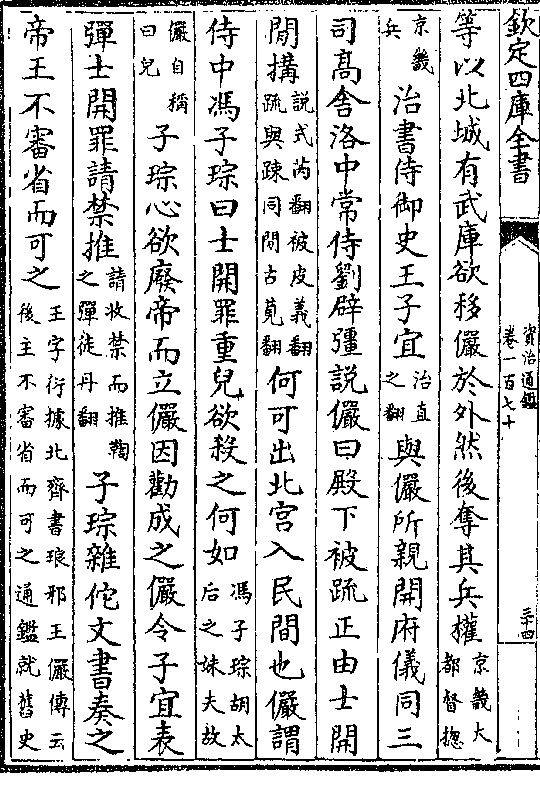 欽定四庫全書
資治通鑑
卷一百七十
三十四
等以北城有武庫欲移儼於外然後奪其兵權京畿大都督惣
京畿兵治書侍御史王子宜治直之翻與儼所親開府儀同三
司高舍洛中常侍劉辟彊說儼曰殿下被疏正由士開
間搆說式芮翻被皮義翻疏與踈同間古莧翻何可出北宫入民間也儼謂
侍中馮子琮曰士開罪重兒欲殺之何如馮子琮胡太后之妹夫故
儼自稱曰兒子琮心欲廢帝而立儼因勸成之儼令子宜表
彈士開罪請禁推請收禁而推鞫之彈徒丹翻子琮雜佗文書奏之
帝王不審省而可之王字衍據北齊書琅邪王儼傳云後主不審省而可之通鑑就舊史